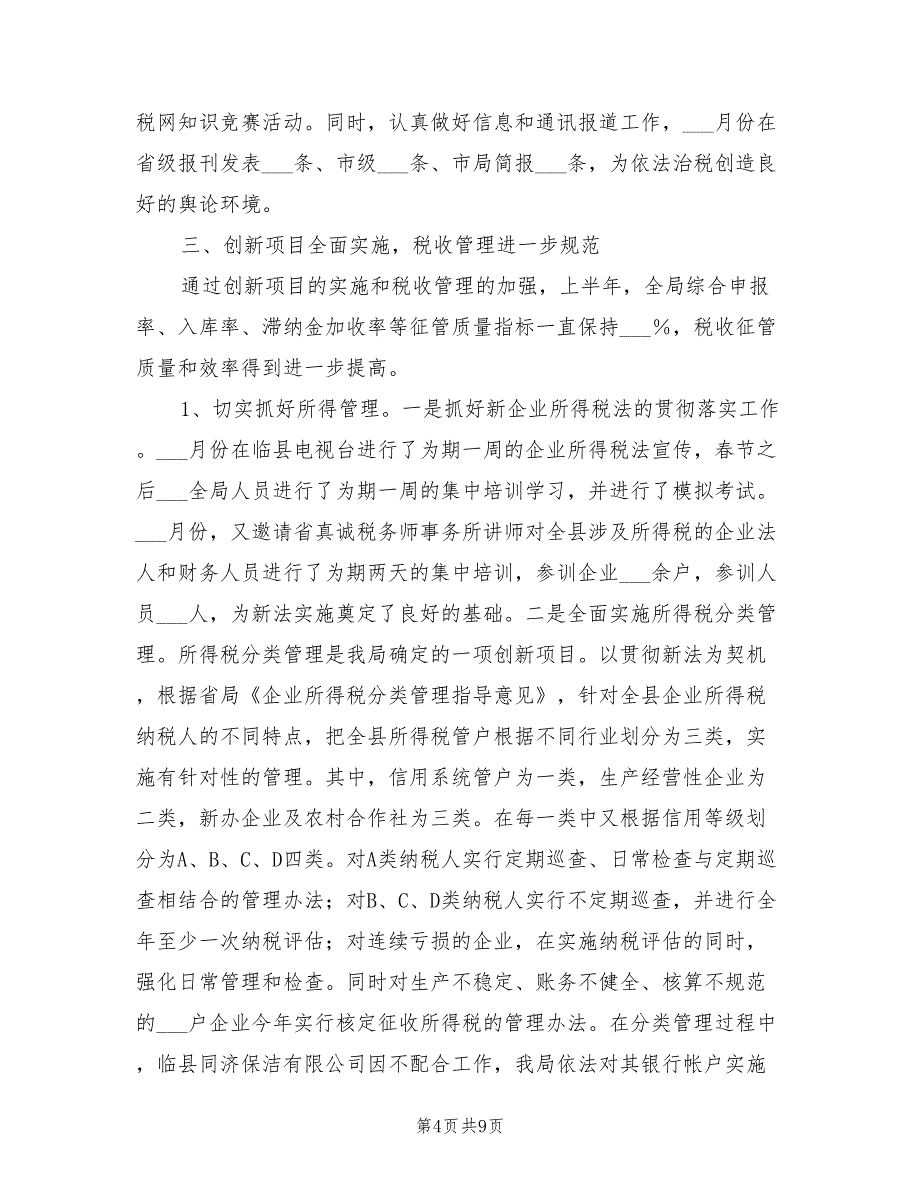 税网知识竞赛活动。同时，认真做好信息和通讯报道工作，___月份在
省级报刊发表___条、市级___条、市局简报___条，为依法治税创造良
好的舆论环境。
三、创新项目全面实施，税收管理进一步规范
通过创新项目的实施和税收管理的加强，上半年，全局综合申报
率、入库率、滞纳金加收率等征管质量指标一直保持___％，税收征管
质量和效率得到进一步提高。
1、切实抓好所得管理。一是抓好新企业所得税法的贯彻落实工作
。___月份在临县电视台进行了为期一周的企业所得税法宣传，春节之
后___全局人员进行了为期一周的集中培训学习，并进行了模拟考试。
___月份，又邀请省真诚税务师事务所讲师对全县涉及所得税的企业法
人和财务人员进行了为期两天的集中培训，参训企业___余户，参训人
员___人，为新法实施奠定了良好的基础。二是全面实施所得税分类管
理。所得税分类管理是我局确定的一项创新项目。以贯彻新法为契机
，根据省局《企业所得税分类管理指导意见》，针对全县企业所得税
纳税人的不同特点，把全县所得税管户根据不同行业划分为三类，实
施有针对性的管理。其中，信用系统管户为一类，生产经营性企业为
二类，新办企业及农村合作社为三类。在每一类中又根据信用等级划
分为A、B、C、D四类。对A类纳税人实行定期巡查、日常检查与定期巡
查相结合的管理办法；对B、C、D类纳税人实行不定期巡查，并进行全
年至少一次纳税评估；对连续亏损的企业，在实施纳税评估的同时，
强化日常管理和检查。同时对生产不稳定、账务不健全、核算不规范
的___户企业今年实行核定征收所得税的管理办法。在分类管理过程中
，临县同济保洁有限公司因不配合工作，我局依法对其银行帐户实施
第4页 共9页